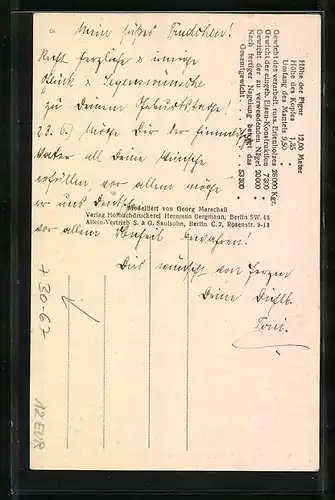 Mein süßes Trudchen!
Recht herzliche & innige
Glück & Segenswünsche
zu Deinem Geburtstage!
23.6. Möge Dir der himmlische
Vater all Deine Wünsche
erfüllen, vor allem möge
er uns
vor allem Unheil bewahren!
Dies wünscht von Herzen
Deine
Toni.
Höhe der Figur 12,00 Meter
Höhe des Kopfes 1,35 "
Umfang des Mantels 9,50 "
Gewicht des verarbeit. russ. Erlenholzes 26 000 Kgr.
Gewicht der eingeb. Eisen-Konstruktion 7 300 "
Gewicht der zu verwendenden Nägel 20 000 "
Nach fertiger Nagelung beträgt das
Gesamtgewicht 53 300 "
Modelliert von Georg Marschall
Verlag Hofbuchdruckerei Hermann Bergmann, Berlin SW. 48
Allein-Vertrieb S. & G. Saulsohn, Berlin C. 2, Rosenstr. 9-13
+30-67
12 EUR